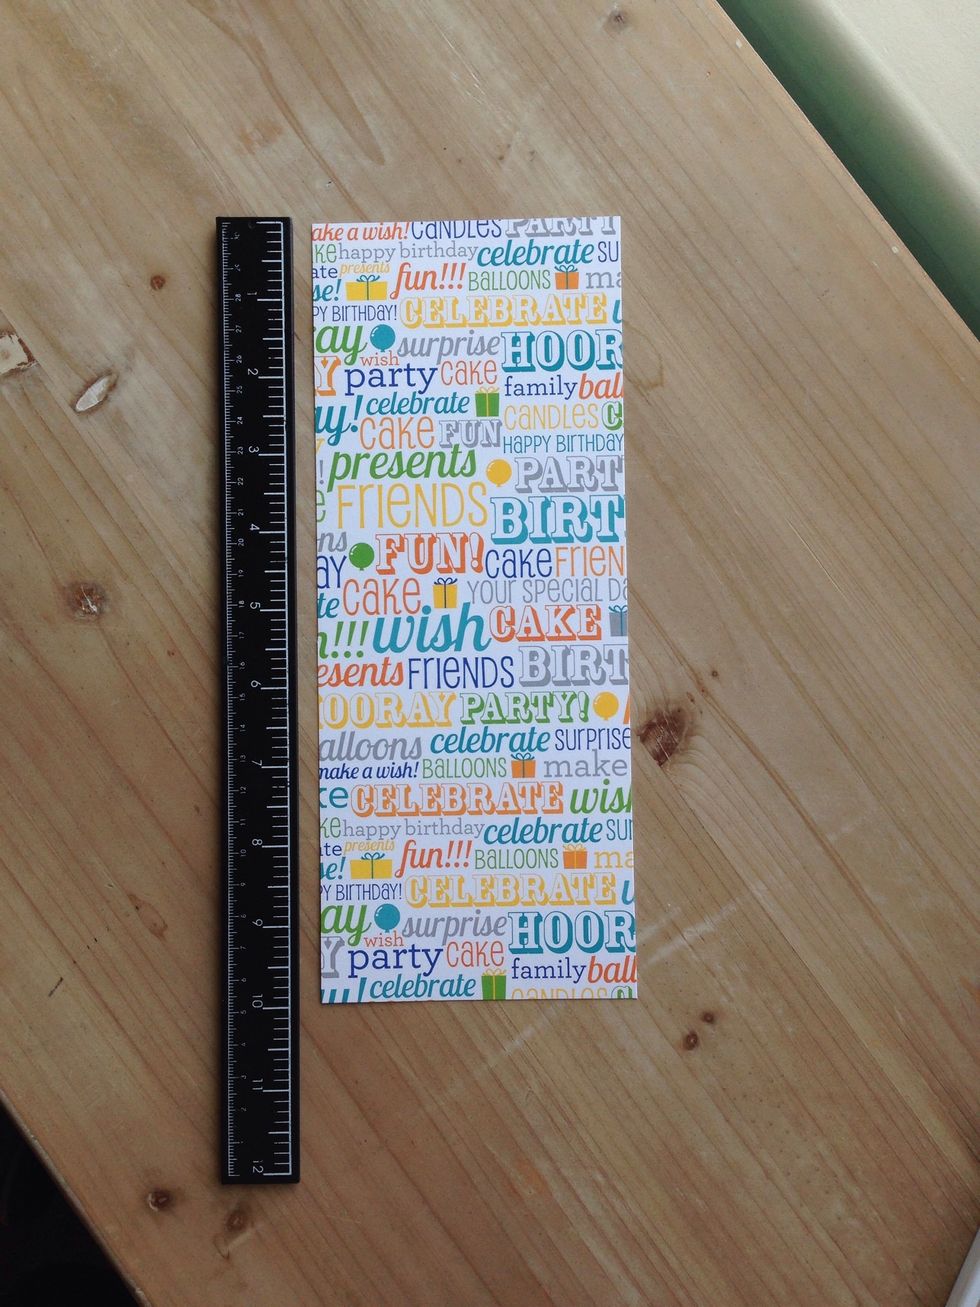 ake a wish! CANDLES PARTY
ke happy birthday celebrate SU
ate presents fun!!! BALLOONS ma
se! PY BIRTHDAY! CELEBRATE
ay surprise HOOR
wish
Y party CAKE family ball
ay! celebrate CANDLES C
CAKE FUN HAPPY BIRTHDAY
! presents PART
FRIENDS BIRT
ns
AY FUN! CAKE FRIEN
te CAKE YOUR SPECIAL DA
n!!! wish CAKE
esents FRIENDS BIRT
OORAY PARTY!
alloons celebrate SURPRISE
make a wish! BALLOONS make
ke CELEBRATE wish
ke happy birthday celebrate SU
ate presents fun!!! BALLOONS ma
se! PY BIRTHDAY! CELEBRATE
ay surprise HOOR
wish
Y party CAKE family ball
celebrate CANDLES C
1
2
3
4
5
6
7
8
9
10
11
12